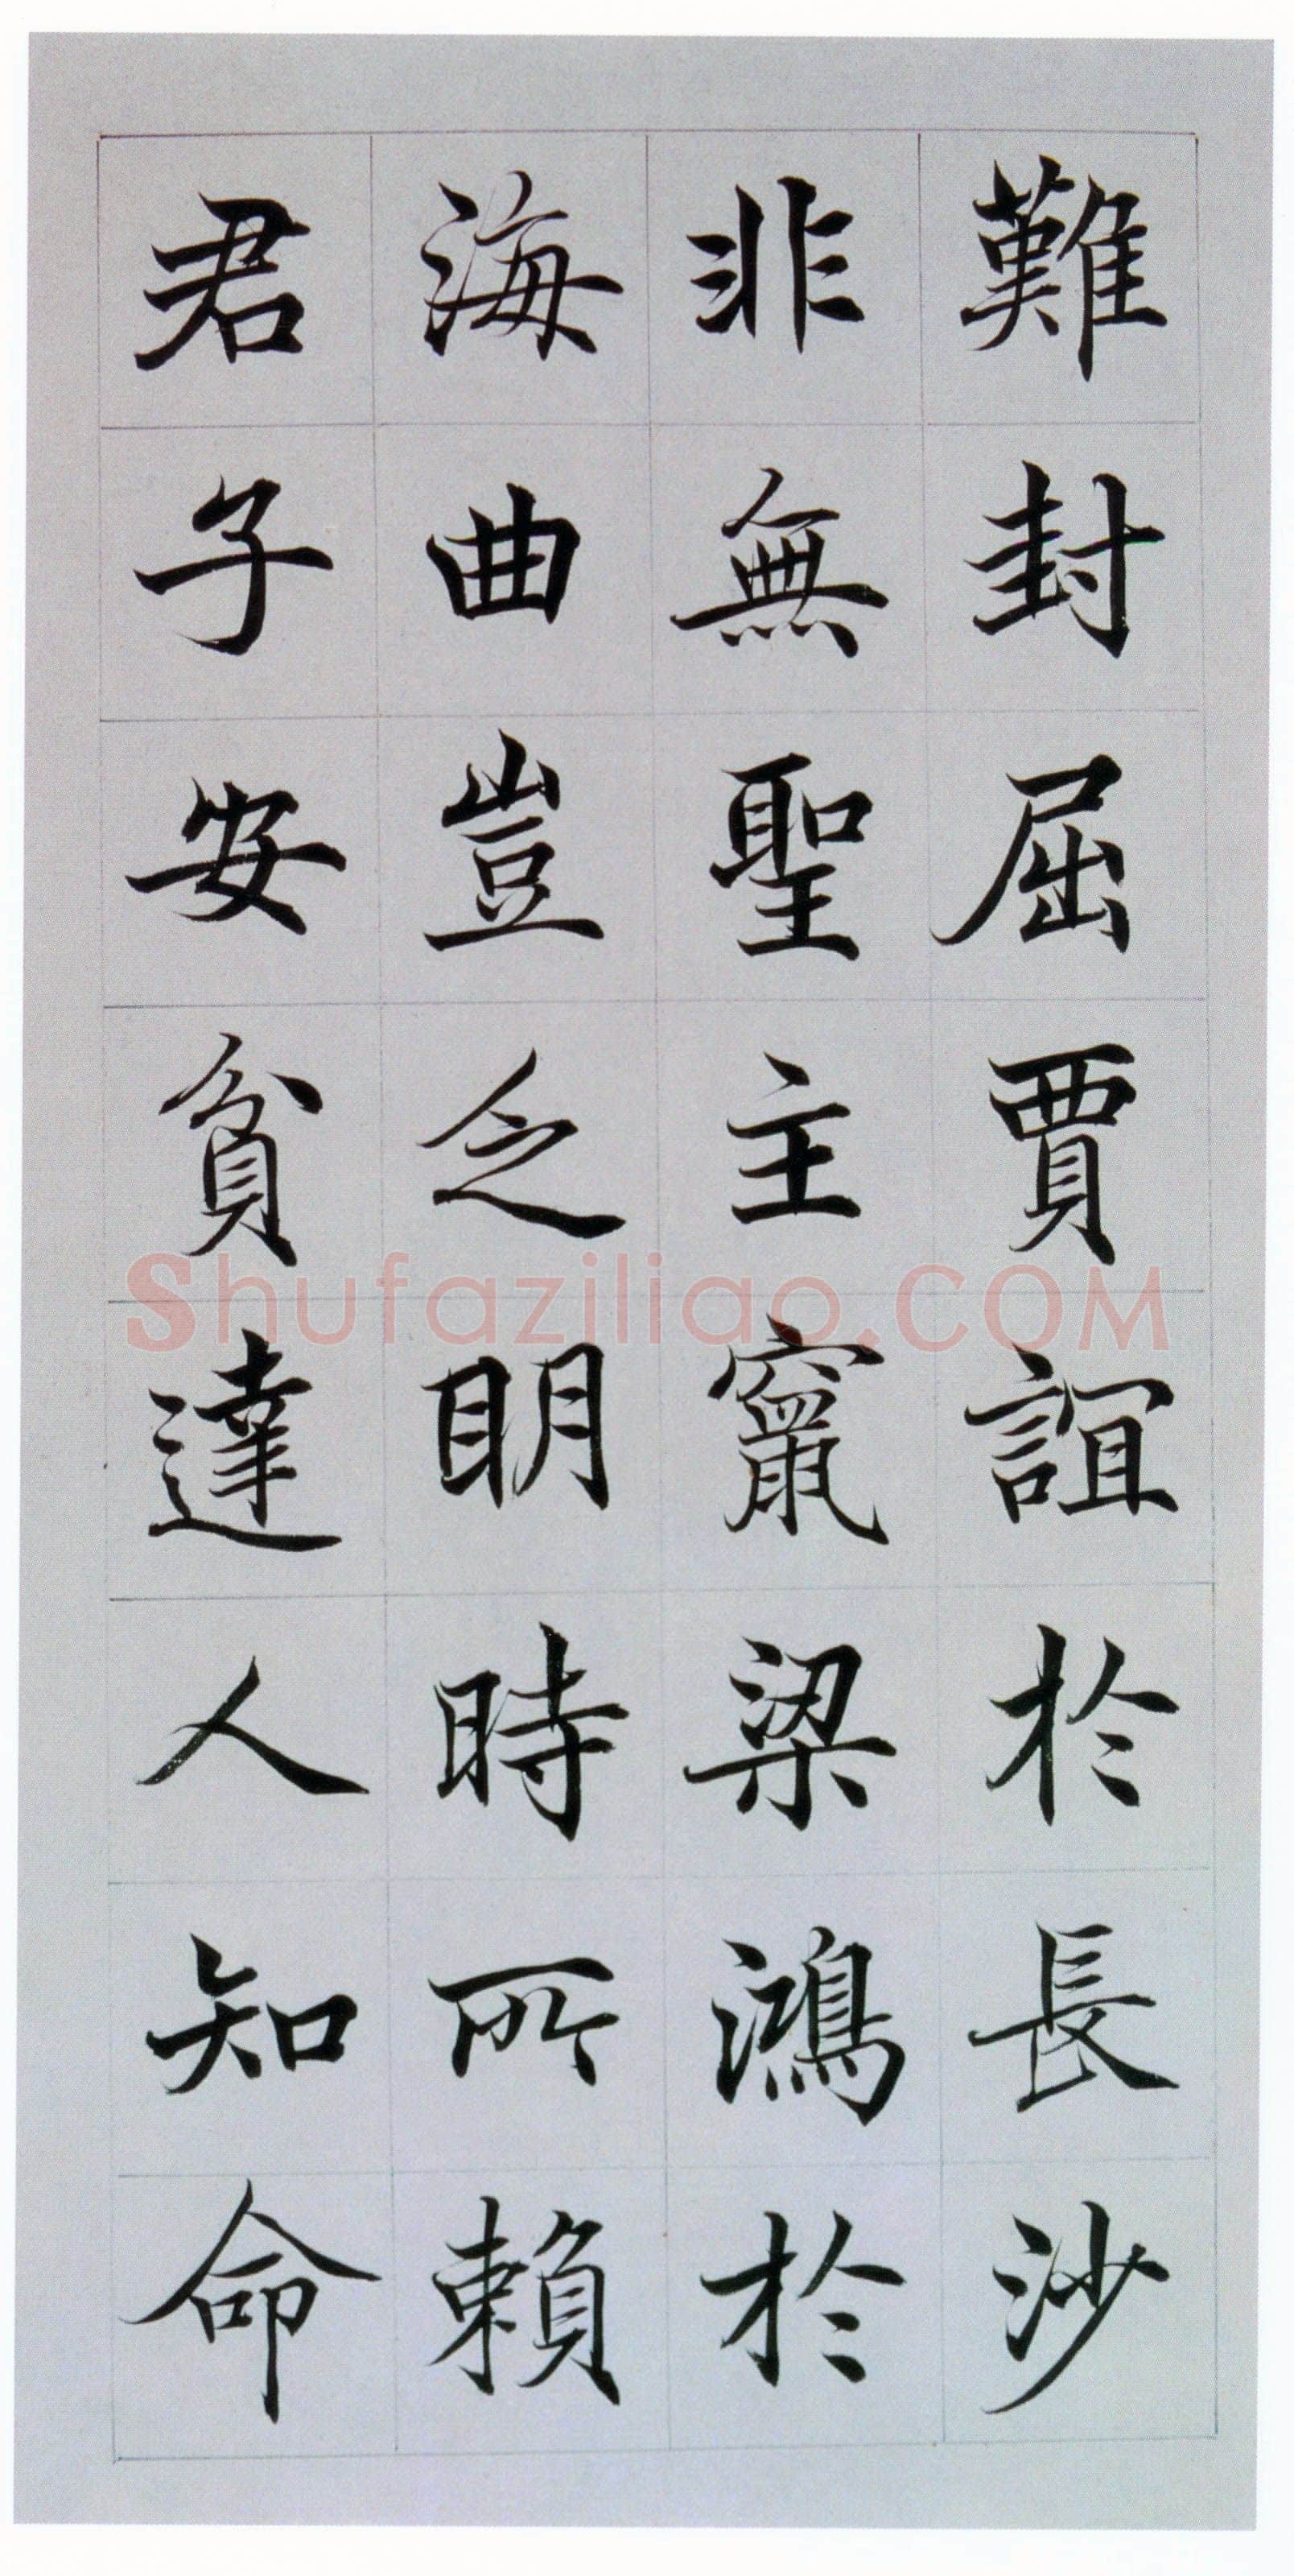 難封屈賈誼於長沙
非無聖主竄梁鴻於
海曲豈乏明時所賴
君子安貧達人知命
Shufaziliao.COM